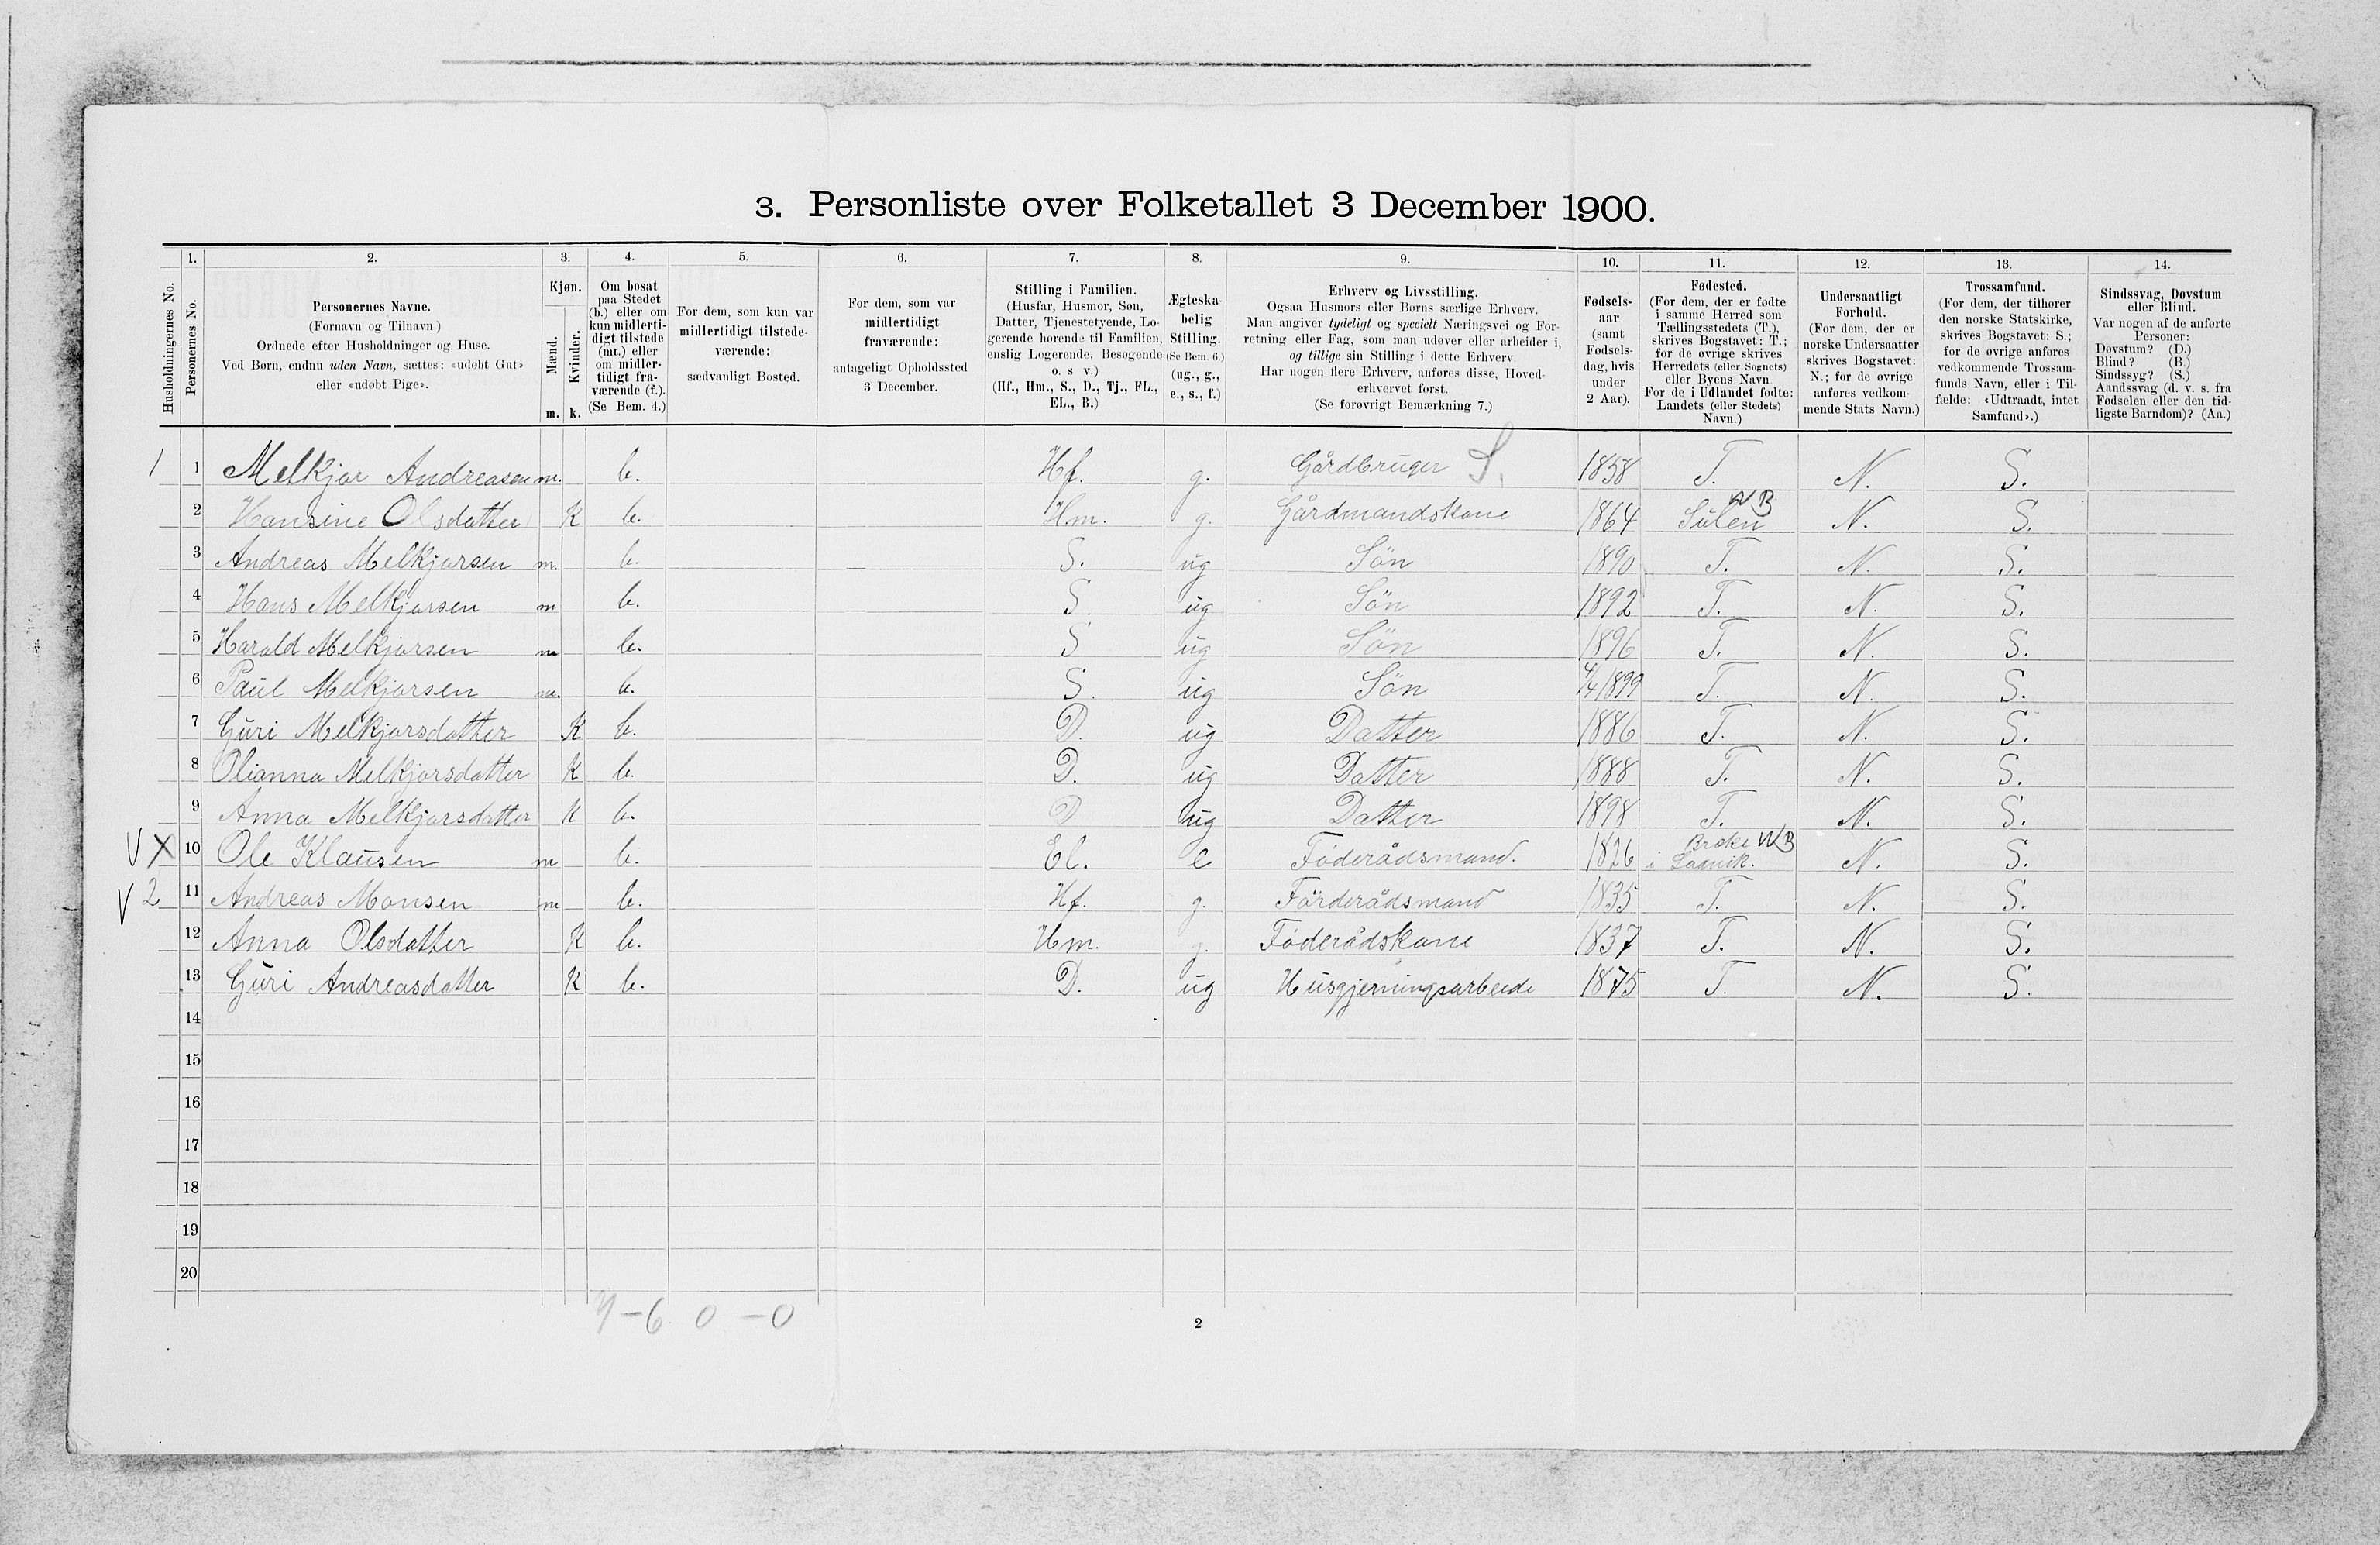 3. Personliste over Folketallet 3 December 1900.
1. 2. 3. 4. 5. 6. 7. 8. 9. 10. 11. 12. 13. 14.
Husholdningernes No.
Personernes No.
Personernes Navne.
(Fornavn og Tilnavn)
Ordnede efter Husholdninger og Huse.
Ved Børn, endnu uden Navn, sættes: «udøbt Gut»
eller «udøbt Pige».
Kjøn.
Mænd.
Kvinder.
m. k.
Om bosat
paa Stedet
(b.) eller om
kun midlerti-
digt tilstede
(mt.) eller
om midler-
tidigt fra-
værende (f.).
(Se Bem. 4.)
For dem, som kun var
midlertidigt tilstede-
værende:
sædvanligt Bosted.
For dem, som var
midlertidigt
fraværende:
antageligt Opholdssted
3 December.
Stilling i Familien.
(Husfar, Husmor, Søn,
Datter, Tjenestetyende, Lo-
gerende hørende til Familien,
enslig Logerende, Besøgende
o. s v.)
(Hf., Hm., S., D., Tj., FL.,
EL., B.)
Ægteska-
belig
Stilling.
(Se Bem. 6.)
(ug., g.,
e., s., f.)
Erhverv og Livsstilling.
Ogsaa Husmors eller Børns særlige Erhverv.
Man angiver tydeligt og specielt Næringsvei og For-
retning eller Fag, som man udøver eller arbeider i,
og tillige sin Stilling i dette Erhverv.
Har nogen flere Erhverv, anføres disse, Hoved-
erhvervet først.
(Se forøvrigt Bemærkning 7.)
Fødsels-
aar
(samt
Fødsels-
dag, hvis
under
2 Aar).
Fødested.
(For dem, der er fødte
i samme Herred som
Tællingsstedets (T.),
skrives Bogstavet: T.;
for de øvrige skrives
Herredets (eller Sognets)
eller Byens Navn
For de i Udlandet fødte:
Landets (eller Stedets)
Navn.)
Undersaatligt
Forhold.
(For dem, der er
norske Undersaatter
skrives Bogstavet:
N.; for de øvrige
anføres vedkom-
mende Stats Navn.)
Trossamfund.
(For dem, der tilhører
den norske Statskirke,
skrives Bogstavet: S.;
for de øvrige anføres
vedkommende Trossam-
funds Navn, eller i Til-
fælde: «Udtraadt, intet
Samfund».)
Sindssvag, Døvstum
eller Blind.
Var nogen af de anførte
Personer:
Døvstum? (D.)
Blind? (B.)
Sindssyg? (S.)
Aandssvag (d. v. s. fra
Fødselen eller den tid-
ligste Barndom)? (Aa.)
1 1 Melkjor Andreasen m. b. Hf. g. Gårdbruger S. 1858 T. N. S.
2 Hansine Olsdatter K b. Hm. g. Gårdmandskone 1864 Sulen WB N. S.
3 Andreas Melkjorsen m. b. S. ug Søn 1890 T. N. S.
4 Hans Melkjorsen m b. S. ug Søn 1892 T. N. S.
5 Harald Melkjorsen m b. S ug Søn 1896 T. N. S.
6 Paul Melkjorsen m. b. S. ug Søn 4/4 1899 T. N. S.
7 Guri Melkjorsdatter K b. D. ug Datter 1886 T. N. S.
8 Olianna Melkjorsdatter K b. D. ug Datter 1888 T. N. S.
9 Anna Melkjorsdatter K b. D ug Datter 1898 T. N. S.
V X 10 Ole Klausen m b. El. e Föderådsmand. 1826 Brske WB i N. S.
V 2 11 Andreas Monsen m b. Hf. g. Förderådsmand 1835 T. N. S.
12 Anna Olsdatter K b. Hm. g. Föderådskone 1837 T. N. S.
13 Guri Andreasdatter K b. D. ug Husgjerningsarbeide 1875 T. N. S.
14
15
16
17
18
19
20
7-6 0-0
2